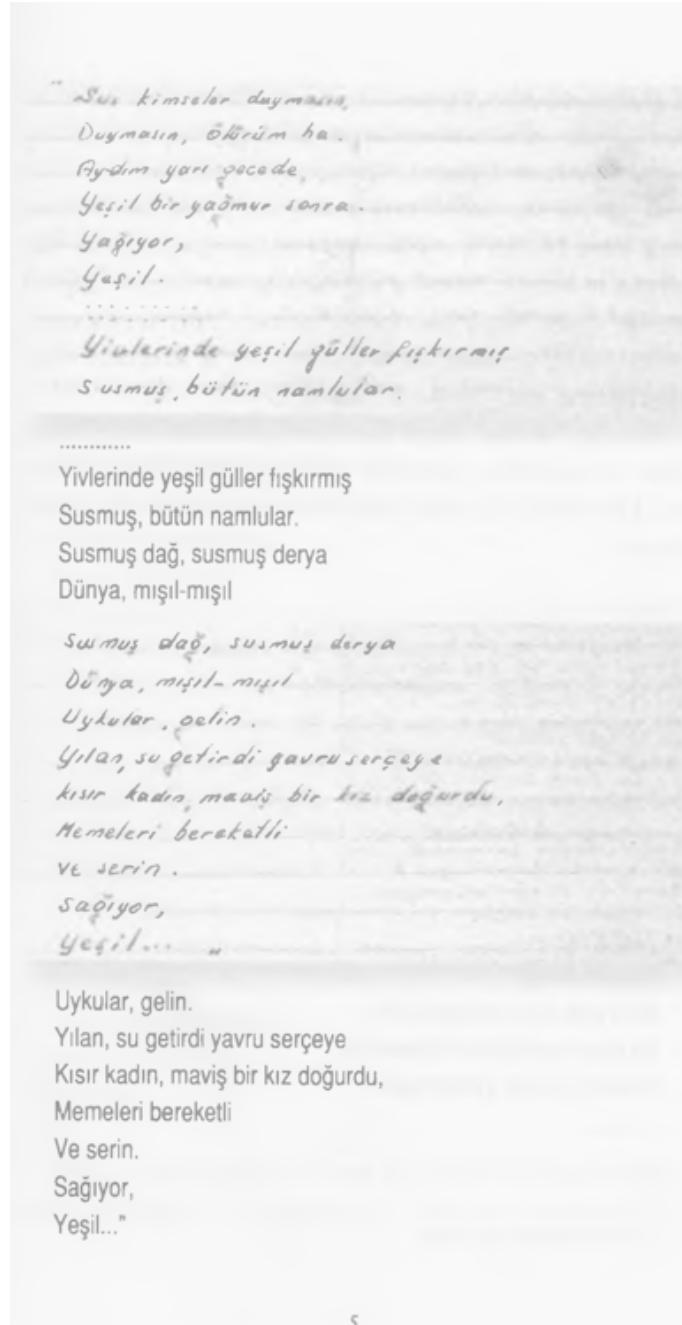 " Sus kimseler duymasın,
Duymasın, ölürüm ha.
Aydım yarı gecede,
Yeşil bir yağmur sonra.
Yağıyor,
Yeşil.
. . . . . . . . . .
Yivlerinde yeşil güller fışkırmış
Susmuş, bütün namlular.
............
Yivlerinde yeşil güller fışkırmış
Susmuş, bütün namlular.
Susmuş dağ, susmuş derya
Dünya, mışıl-mışıl
Susmuş dağ, susmuş derya
Dünya, mışıl-mışıl
Uykular, gelin.
Yılan, su getirdi yavru serçeye
kısır kadın, maviş bir kız doğurdu,
Memeleri bereketli
ve serin.
sağıyor,
Yeşil... "
Uykular, gelin.
Yılan, su getirdi yavru serçeye
Kısır kadın, maviş bir kız doğurdu,
Memeleri bereketli
Ve serin.
Sağıyor,
Yeşil..."
5